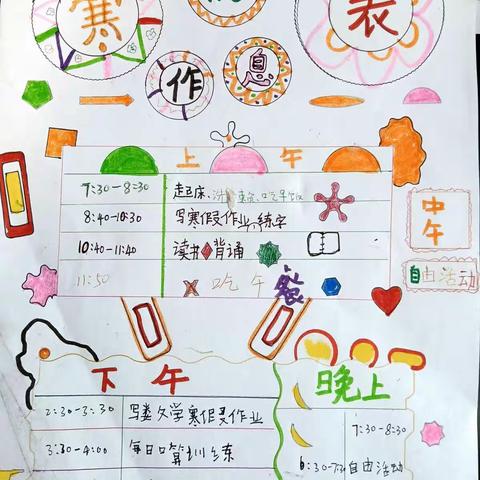 寒
表
作息
上午
7:30-8:30 起床、洗
8:40-10:30 写寒假作业、练字
10:40-11:40 读书 背诵
11:50 吃午餐
中午
自由活动
下午
2:30-3:30 写数学寒假作业
3:30-4:00 每日口算训练
晚上
7:30-8:30
6:30-7:30 自由活动